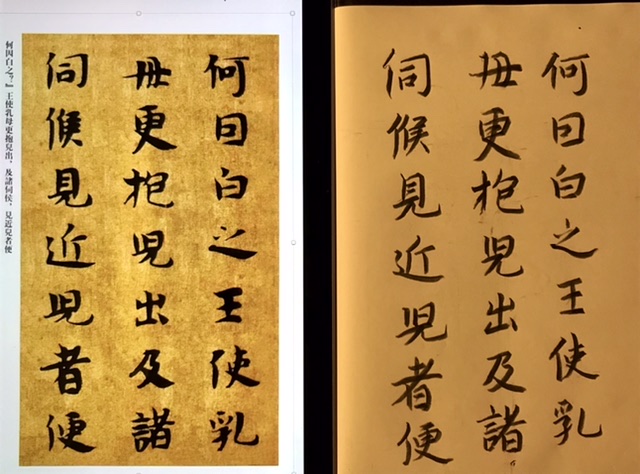 何因白之王使乳
母更抱兒出及諸
伺候見近兒者便
何因白之?』王使乳母更抱兒出,及諸伺候,見近兒者便
何因白之王使乳
母更抱兒出及諸
伺候見近兒者便